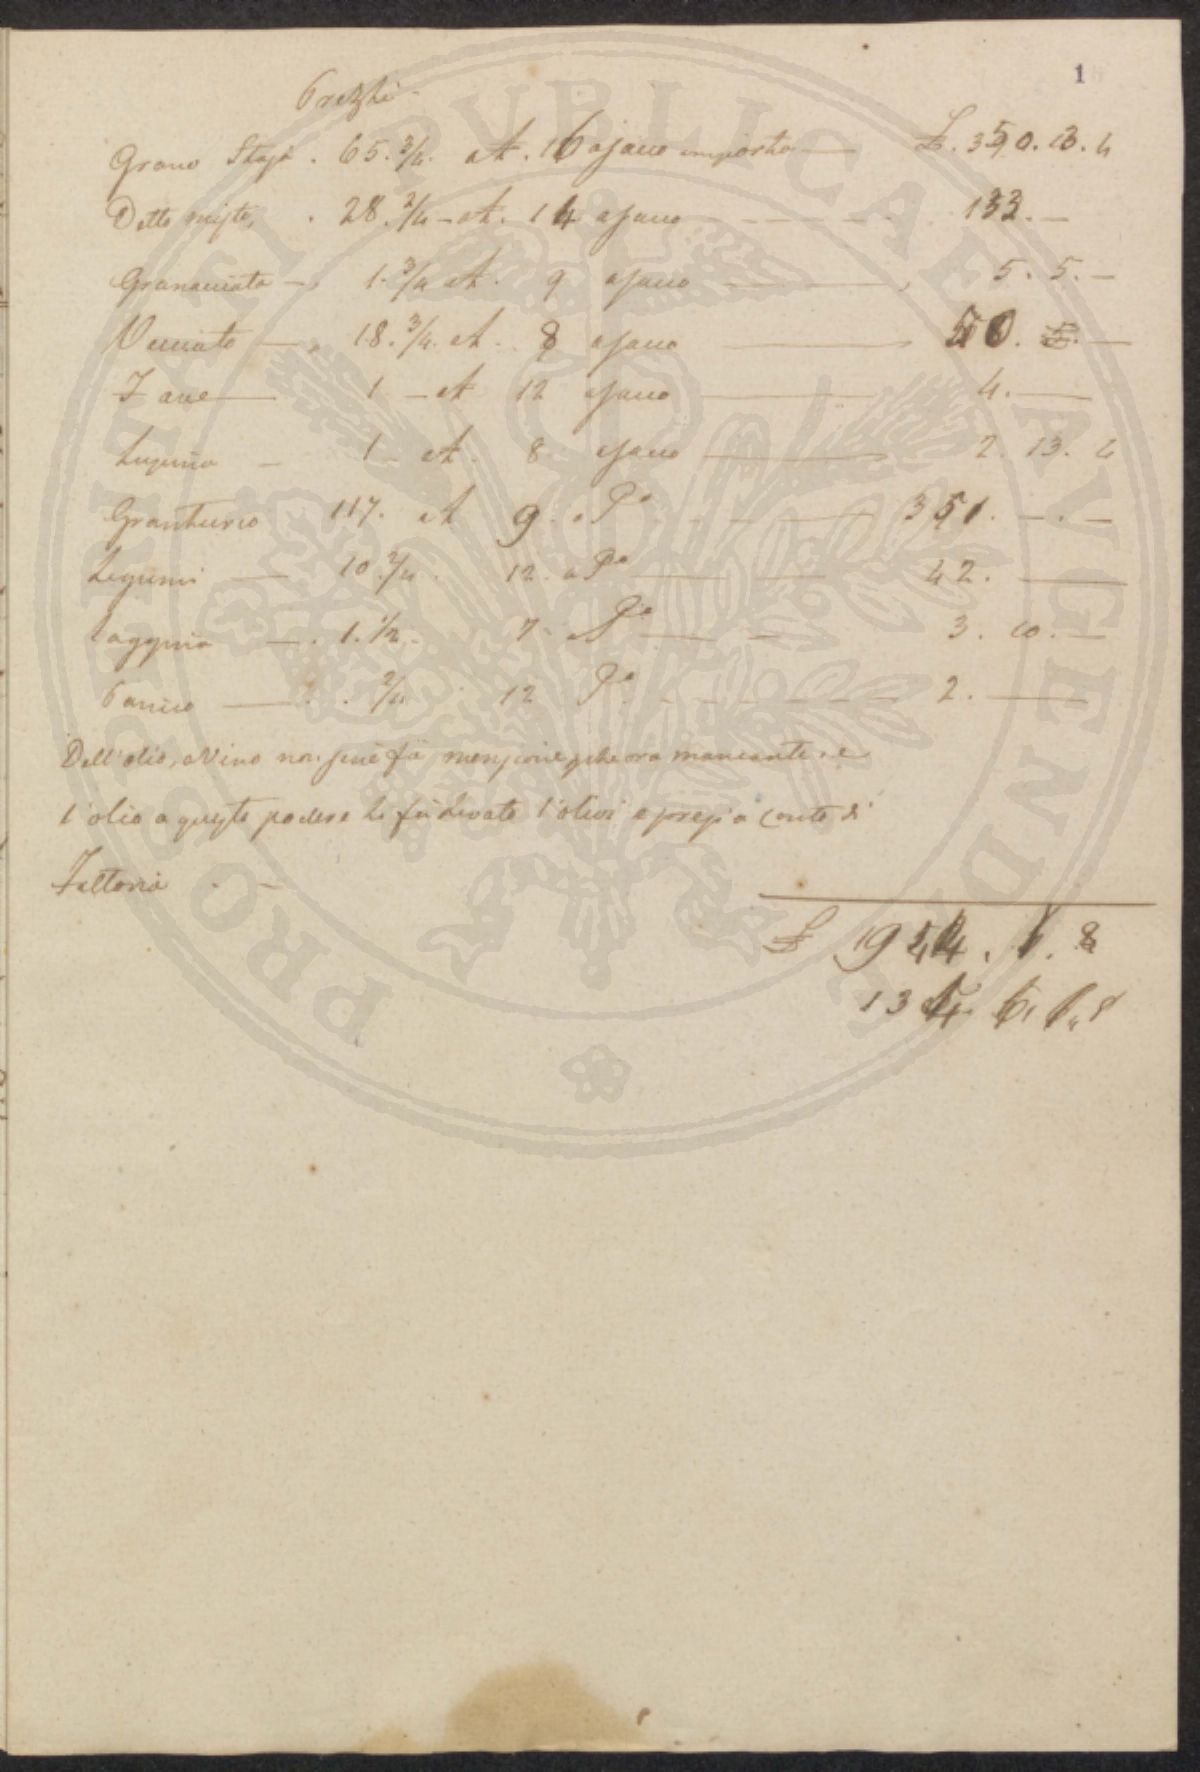 1
Prezzi
Grano Staja . 65. 3/4. at. 16 ajano importa — £. 350. 13. 4
Detto misto, . 28. 2/4 - at. 14 ajano - - - - - 133. —
Granaciato — , 1. 3/4 at. 9 ajano — , 5. 5. —
Vecciato — , 18. 3/4. at. 8 ajano — 50. —
Fave — 1 — at 12 ajano — 4. —
Lupini — 1 - at. 8. ajano — 2. 13. 4
Granturco 117. at 9. a Po - - - — 351. — . —
Legumi — 10. 2/4. 12. a Po — 42. —
Saggina — . 1. 1/2 - 7. a Po — 3. 10. —
Panico — . . 2/4 . 12 Po. - - - - — 2. —
Dell'olio, e Vino non sene fà menzione che ora mancante, e
l'olio a questo podere li fù levato l'olivi e presi a Conto di
Fattoria . —
£ 1944. 1. 8
134 6. 1. 8
PROSPERITATI PVBLICAE AVGENDAE